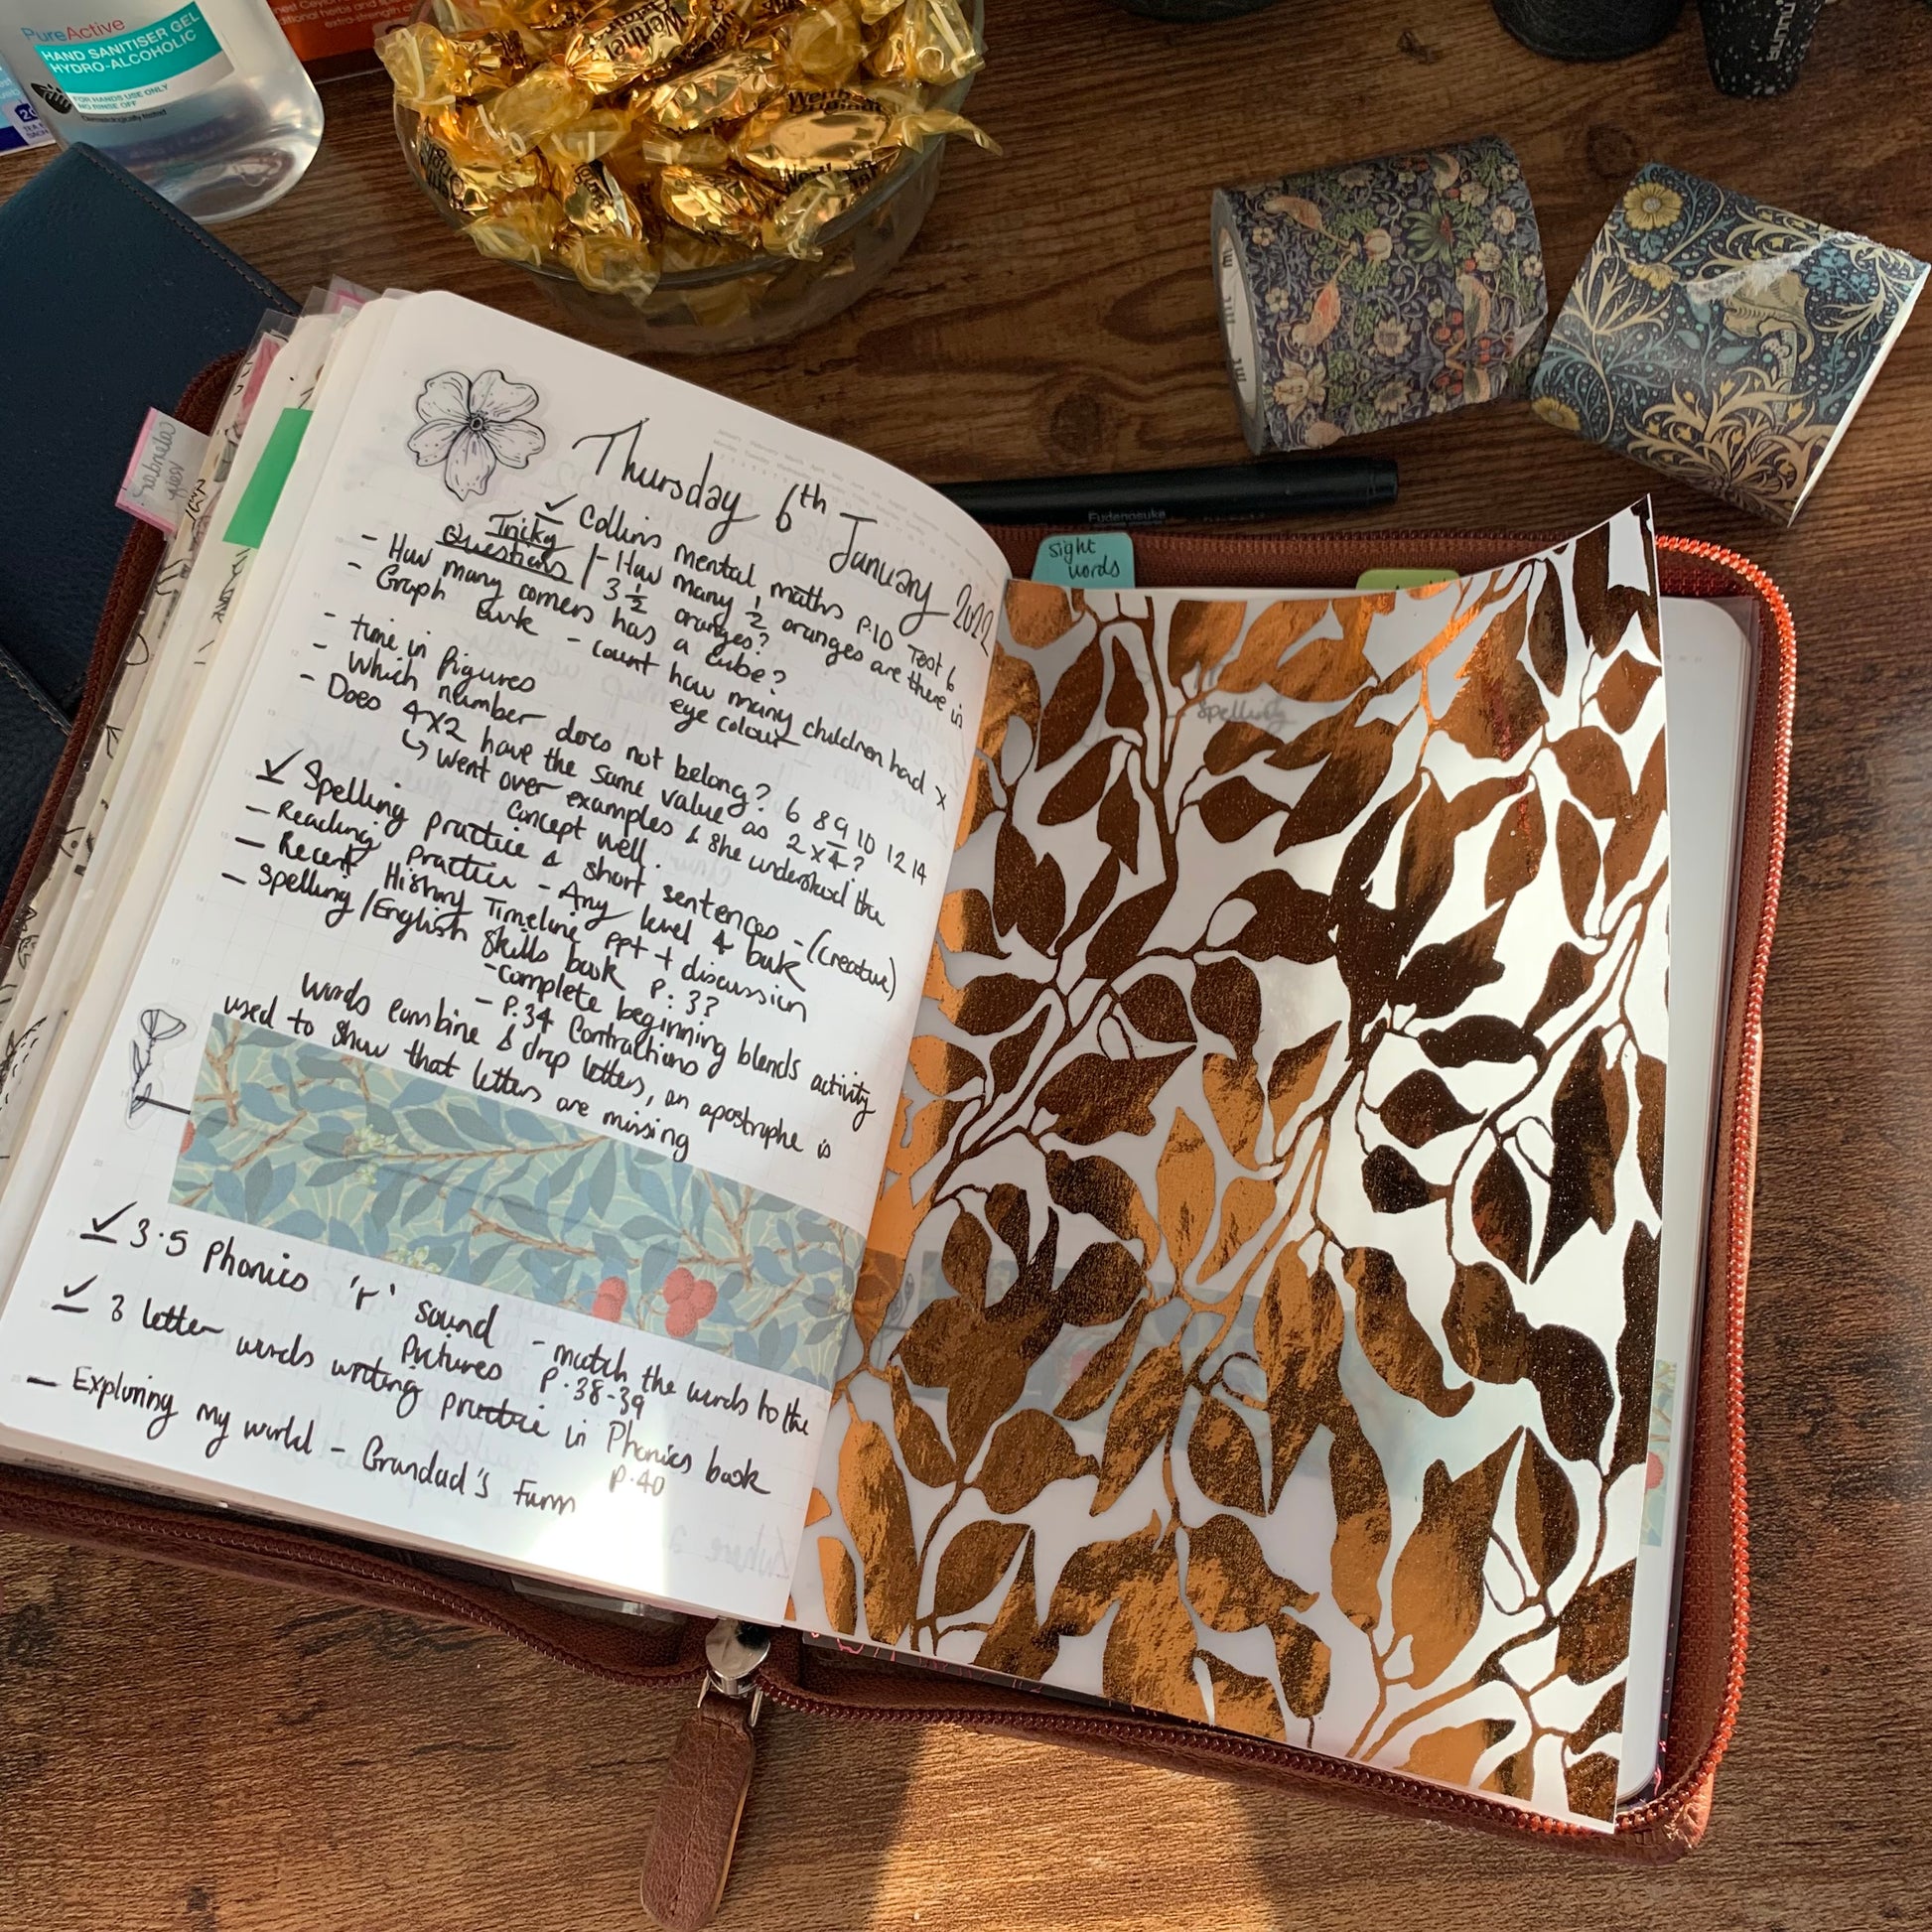 PureActive
HAND SANITISER GEL
HYDRO-ALCOHOLIC
FOR HANDS USE ONLY
NO RINSE OFF
Dermatologically tested
extra-strength
Werther's
Original
mt
Fudenosuke
Sight
words
Thursday 6th January 2022
✓ Collins mental maths P.10 Test 6
Tricky
Questions
- How many ½ oranges are there in
3½ oranges?
- How many corners has a cube?
- Graph - count how many children had x
eye colour
- time in figures
- Which number does not belong? 6 8 9 10 12 14
- Does 4x2 have the same value as 2x4?
↳ Went over examples & she understood the
concept well.
✓ Spelling practice & short sentences - (creative)
- Reading practice - Any level 4 book
- Recent History Timeline ppt + discussion
- Spelling/English Skills book P: 33
- complete beginning blends activity
- P.34 Contractions
words combine & drop letters, an apostrophe is
used to show that letters are missing
✓ 3.5 Phonics 'r' sound - match the words to the
Pictures P.38-39
✓ 3 letter words writing practice in Phonics book
P.40
- Exploring my world - Grandad's Farm
- Spelling